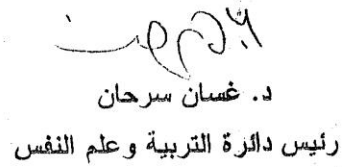 د. غسان سرحان
رئيس دائرة التربية وعلم النفس